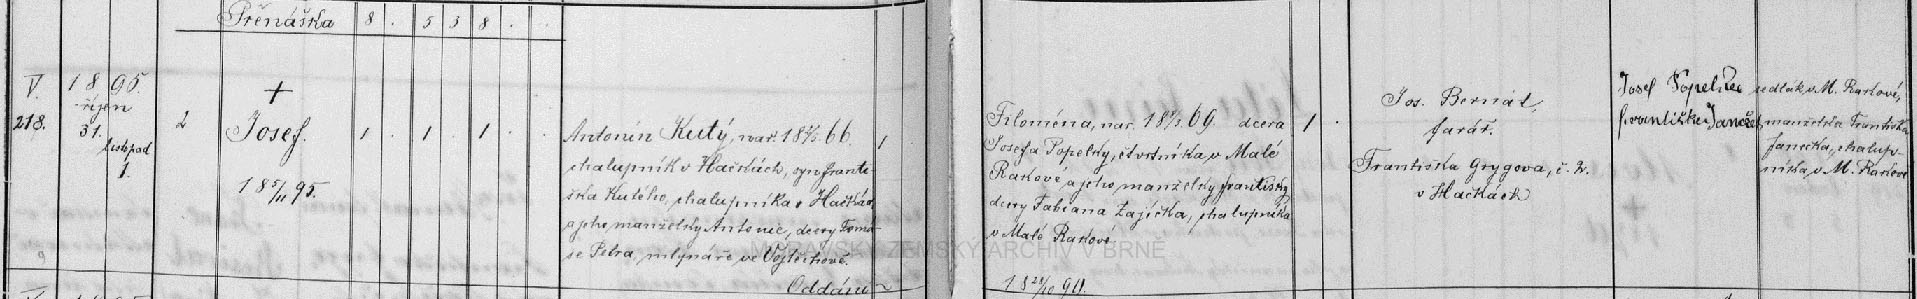 Přenáška 8 . 5 3 8 . .
V.
218.
1895.
říjen
31.
listopad
1.
2
+
Josef.
1 . 1 . 1 . .
Antonín Kutý, nar. 18 66.
chalupník v Hačkách, syn Franti-
ška Kutého, chalupníka v Hačkách
a jeho manželky Antonie, dcery Tomá-
še Petra, mlynáře ve Vojtěchově.
Oddáni
1
Filoména, nar. 18 69 dcera
Josefa Popelky, čtvrtníka v Malé
Rakové a jeho manželky Františky
dcery Fabiana Zajíčka, chalupníka
v Malé Rakové
1 .
Jos. Bernát,
farář.
Františka Grygova, č. 2.
v Hačkách
Josef
Františka Janeček
sedlák v M. Rakové,
manželka Františka
Janečka, chalup-
níka v M. Rakové
MORAVSKÝ ZEMSKÝ ARCHIV V BRNĚ